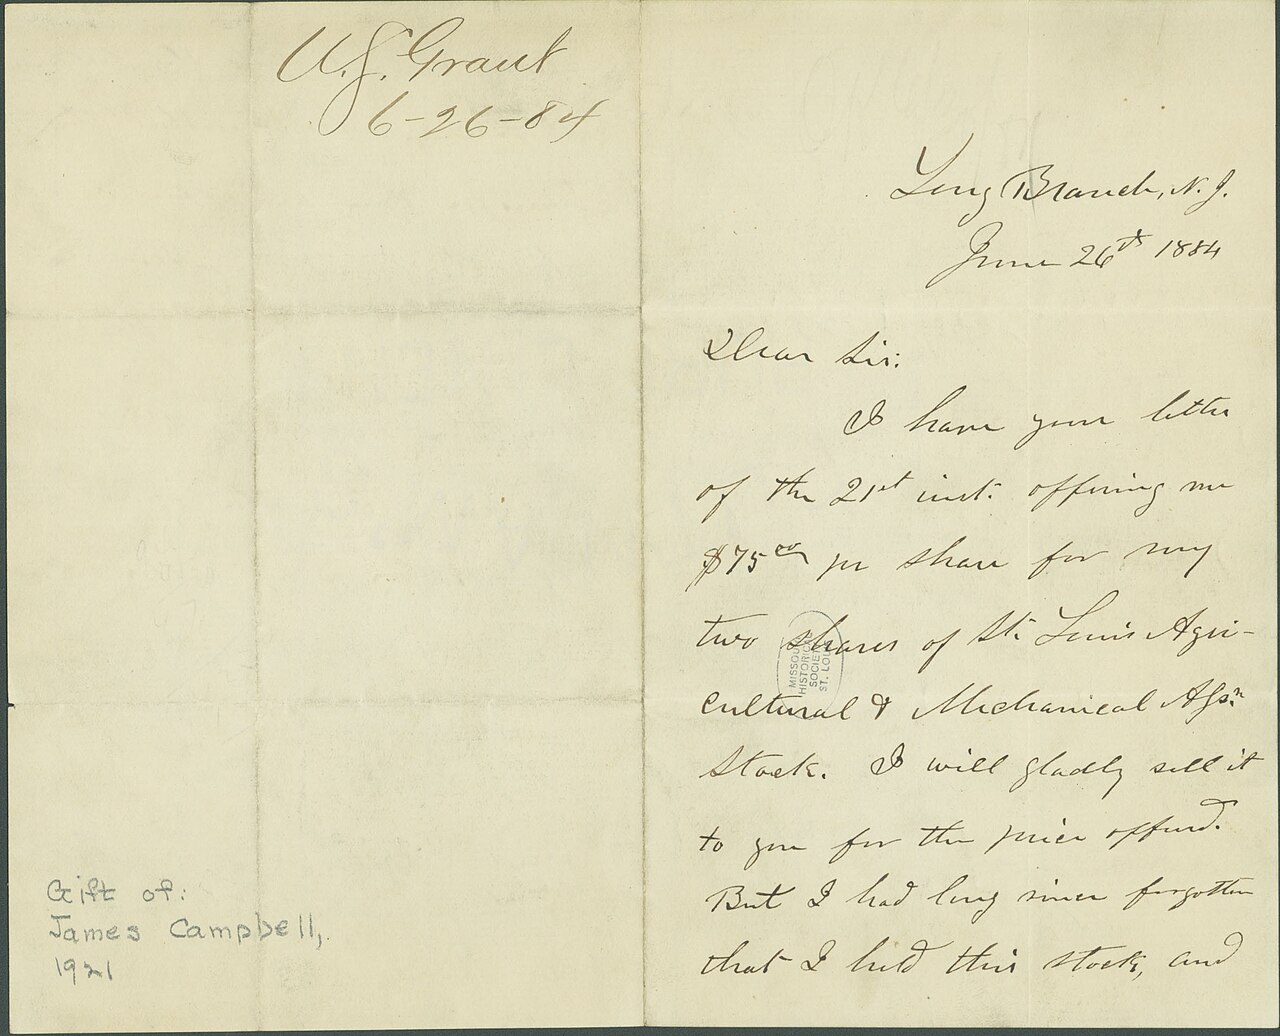 U.S. Grant
6-26-84
Long Branch, N.J.
June 26th 1884
Dear Sir:
I have your letter
of the 21st inst. offering me
$75.00 per share for my
two shares of St. Louis Agri-
cultural & Mechanical Assn
Stock. I will gladly sell it
to you for the price offered.
But I had long since forgotten
that I held this stock, and
MISSOURI
HISTORICAL
SOCIETY
ST. LOUIS
Gift of:
James Campbell,
1921